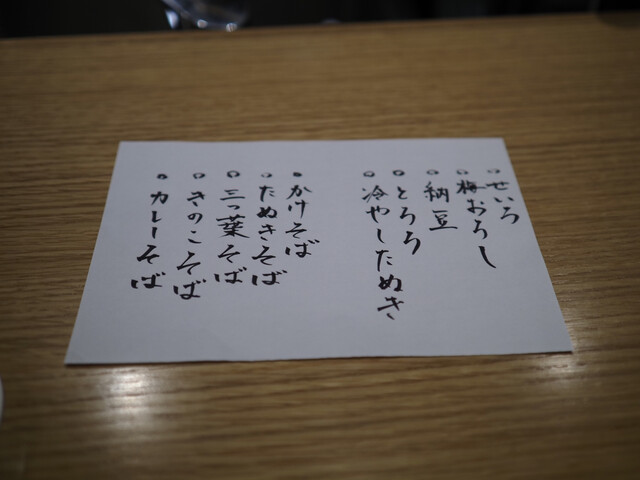 ○せいろ
○梅おろし
○納豆
○とろろ
○冷やしたぬき
○かけそば
○たぬきそば
○三つ葉そば
○きのこそば
○カレーそば